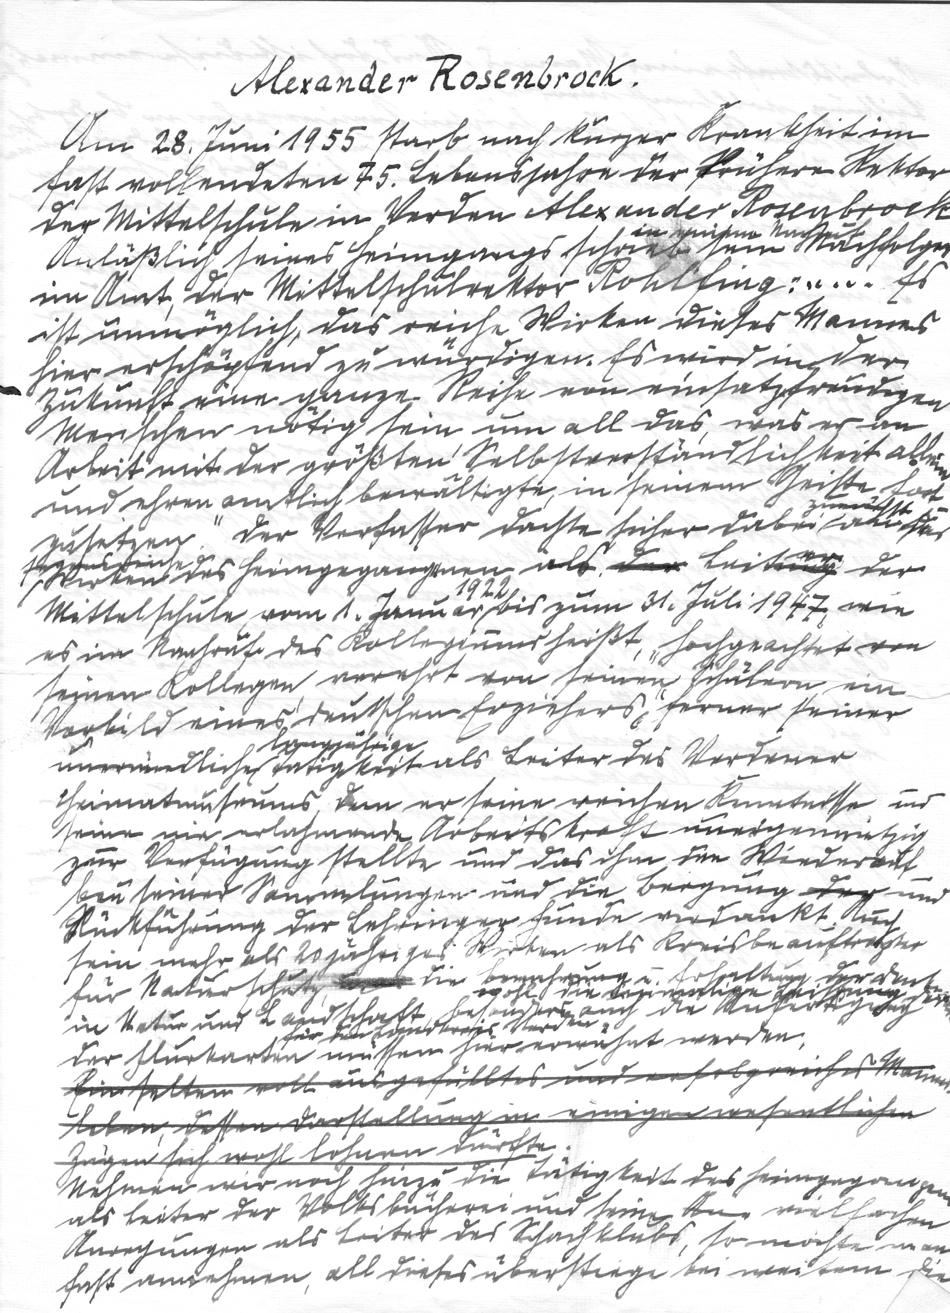 Alexander Rosenbrock.
Am 28. Juni 1955 starb nach kurzer Krankheit im
fast vollendeten 75. Lebensjahre der frühere Rektor
der Mittelschule in Verden Alexander Rosenbrock
in einem Nachruf
Anläßlich seines Heimgangs schrieb sein Nachfolger
im Amt, der Mittelschulrektor Rohlfing: .... Es
ist unmöglich, das reiche Wirken dieses Mannes
hier erschöpfend zu würdigen. Es wird in der
Zukunft eine ganze Reihe von einsatzfreudigen
Menschen nötig sein um all das, was er an
Arbeit mit der größten Selbstverständlichkeit allein
und ehrenamtlich bewältigte, in seinem Geiste fort
zunächst
zusetzen." Der Verfasser dachte sicher dabei an das
segensreiche
Wirken des Heimgegangenen als der Leiter der
1922
Mittelschule vom 1. Januar bis zum 31. Juli 1947, wie
es im Nachruf des Kollegiums heißt, "hochgeachtet von
seinen Kollegen, verehrt von seinen Schülern, ein
Vorbild eines deutschen Erziehers", ferner seiner
langjährige
unermüdliche Tätigkeit als Leiter des Verdener
Heimatmuseums, dem er seine reichen Kenntnisse und
seine nie erlahmende Arbeitskraft uneigennützig
zur Verfügung stellte und das ihm den Wiederauf
bau seiner Sammlungen und die Bergung der und
Rückführung der Lehringer Funde verdankt. Auch
sein mehr als 20jähriges Wirken als Kreisbeauftragter
für Naturschutz, die Bewahrung u. Erhaltung der Denk
wohl die erstmalige
in Natur und Landschaft, besonders auch die
für den Landkreis Verden
der Flurkarten müssen hier erwähnt werden.
Ein selten voll ausgefülltes und erfolgreiches Mannes
leben, dessen Darstellung in einigen wesentlichen
Zügen sich wohl lohnen dürfte.
Nehmen wir noch hinzu die Tätigkeit des Heimgegangenen
als Leiter der Volksbücherei und seine vielfachen
Anregungen als Leiter des Schachklubs, so möchte man
fast annehmen, all dieses überstiege bei weitem die